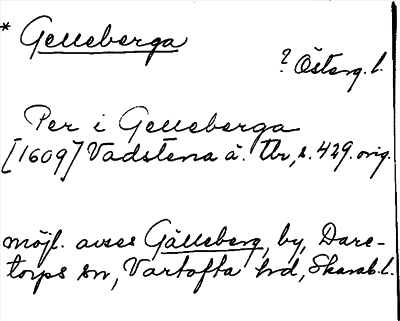 * Gelleberga
? Österg. l.
Per i Gelleberga
[1609] Vadstena ä. tbr, s. 429. orig.
möjl. avses Gälleberg, by, Dare-
torps sn, Vartofta hd, Skarab. l.